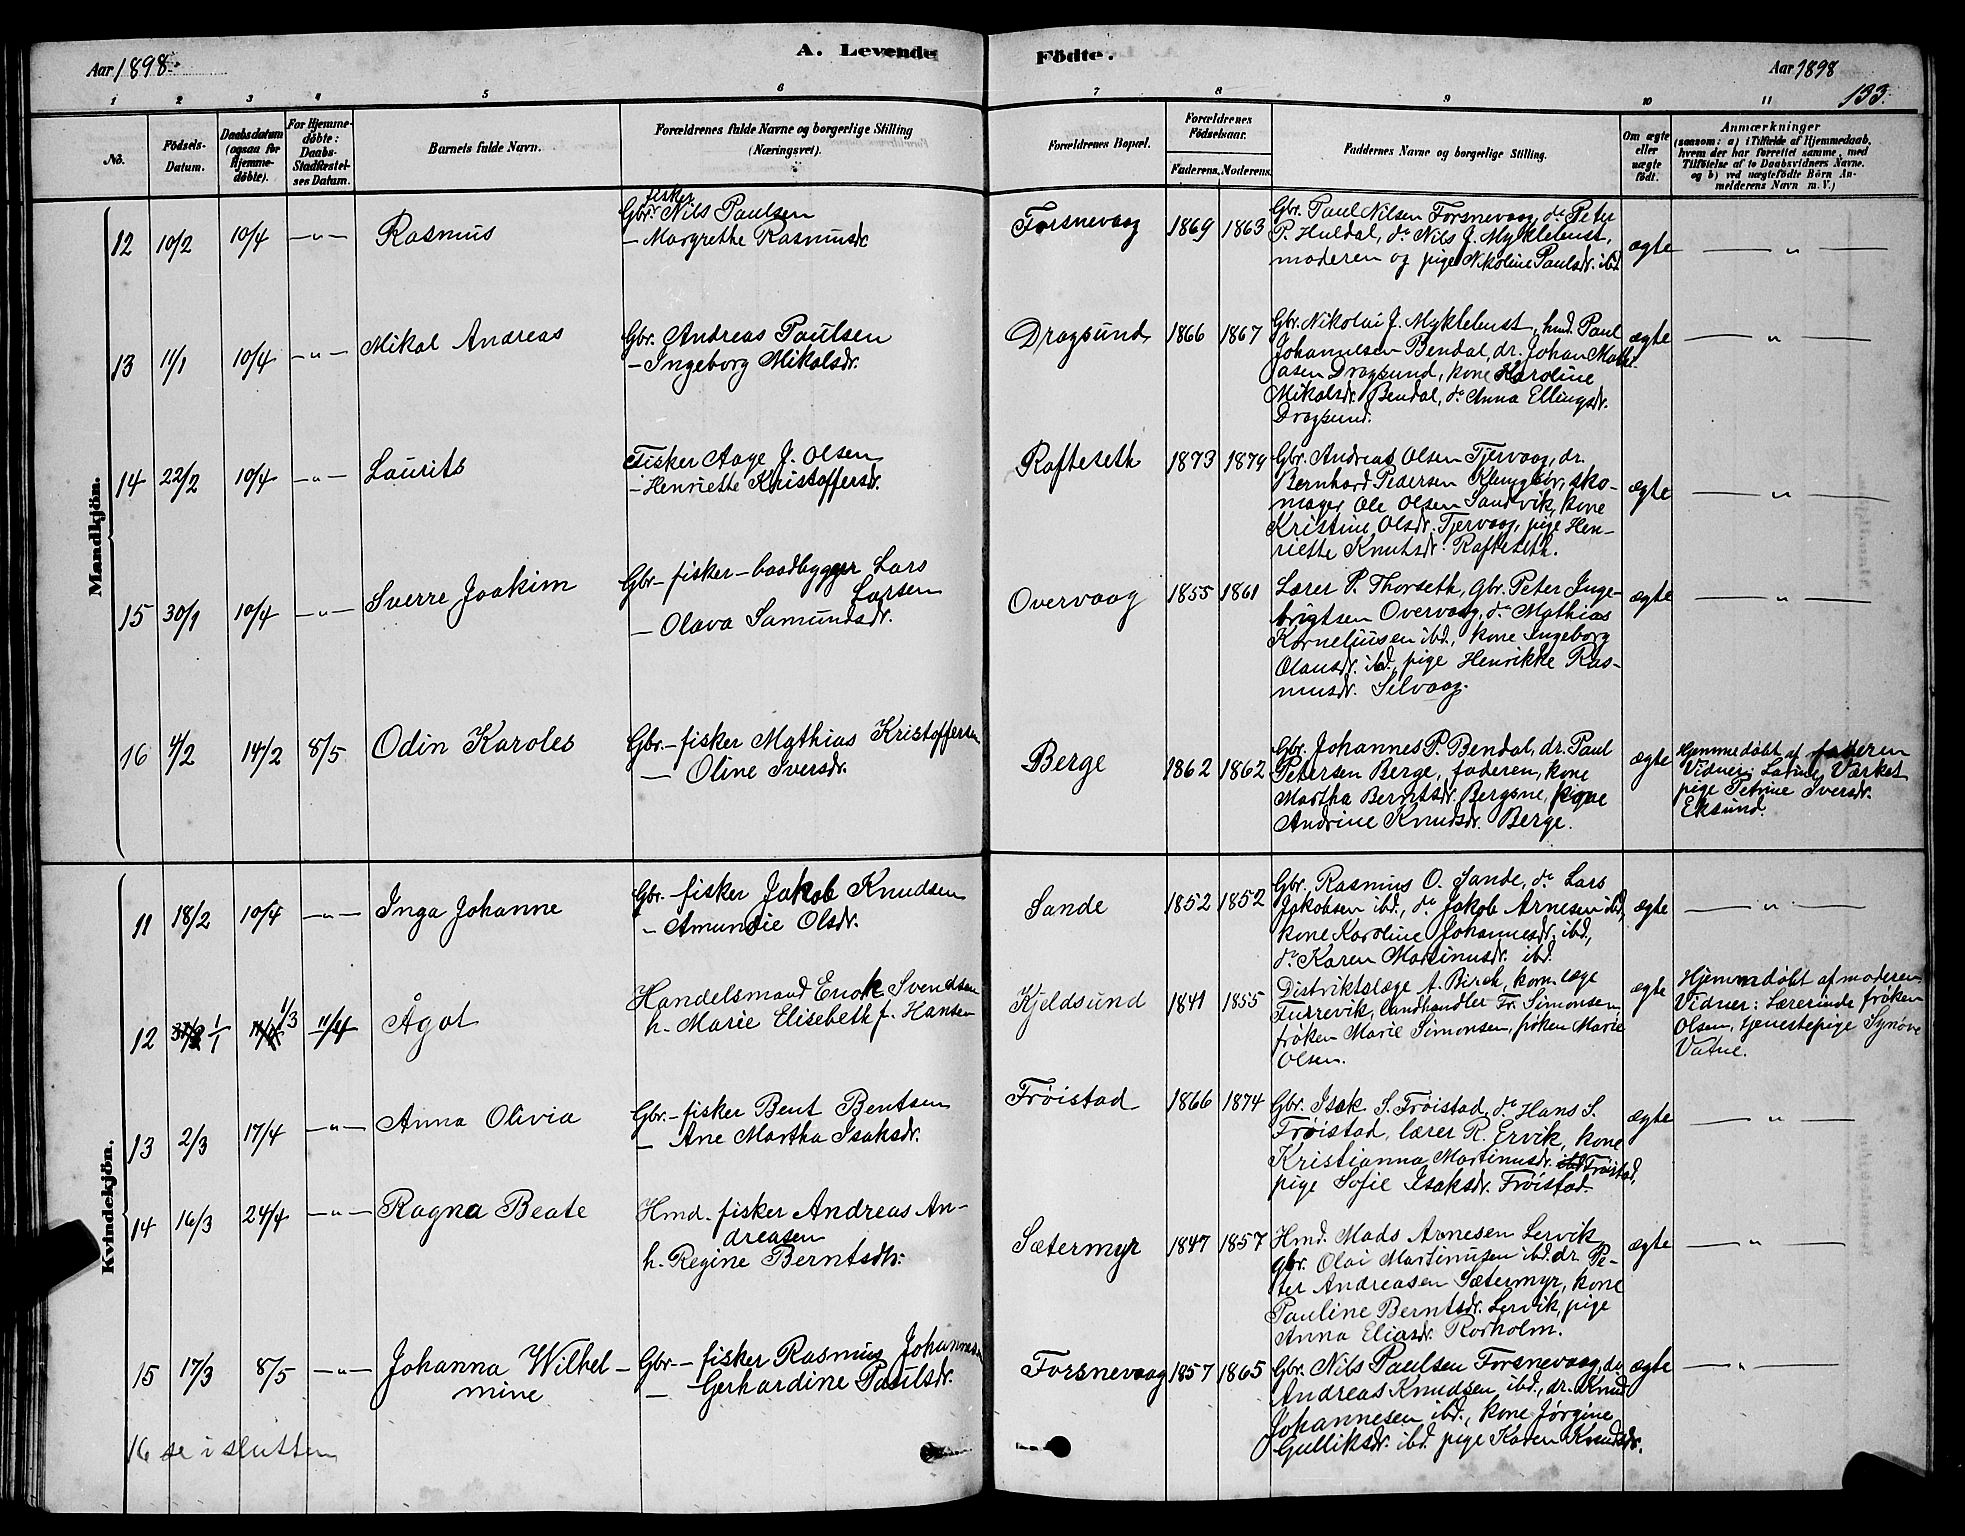 Aar 1898.
A. Levende
Födte.
Aar 1898
133.
1 2 3 4 5 6 7 8 9 10 11
No.
Födsels-Datum.
Daabsdatum (ogsaa for Hjemme-döbte).
For Hjemme-döbte: Daabs-Stadfæstel-ses Datum.
Barnets fulde Navn.
Forældrenes fulde Navne og borgerlige Stilling (Næringsvei).
Forældrenes Bopæl.
Forældrenes Födselsaar.
Faderens. Moderens.
Faddernes Navne og borgerlige Stilling.
Om ægte eller uægte födt.
Anmærkninger
(saasom: a) i Tilfælde af Hjemmedaab, hvem der har forrettet samme, med Tilföielse af to Daabsvidners Navne, og b) ved uægtefödte Börn An-melderens Navn m. V.)
Mandkjön.
12 10/2 10/4 —„— Rasmus
fisker
Gbr. Nils Paulsen
— Margrethe Rasmusdr
Forsnevaag 1869 1863
Gbr. Paul Nilsen Forsnevaag, do Peter
P. Huldal, do Nils J. Myklebust,
moderen og pige Nikoline Paulsdr. ibd
ægte — „ —
13 11/1 10/4 —„— Mikal Andreas
Gbr. Andreas Paulsen
— Ingeborg Mikalsdr.
Dragsund 1866 1867
Gbr. Nikolai J. Myklebust, hmd. Paul
Johannesen Bendal, dr. Johan Mathi
asen Dragsund, kone Karoline
Mikalsdr. Bendal, do Anna Ellingsdr.
Dragsund.
ægte — „ —
14 22/2 10/4 —„— Laurits
Fisker Aage J. Olsen
— Henriette Kristoffersdr.
Rafteseth 1873 1879
Gbr. Andreas Olsen Tjervaag, dr.
Bernhard Pedersen Klungbör, sko-
mager Ole Olsen Sandvik, kone
Kristine Olsdr. Tjervaag, pige Hen-
riette Knutsdr. Rafteseth.
ægte — „ —
15 30/1 10/4 —„— Sverre Joakim
Gbr- fisker - baadbygger Lars
Larsen
— Olava Samundsdr.
Overvaag 1855 1861
Lærer P. Thorseth, Gbr. Peter Inge-
brigtsen Overvaag, do Mathias
Korneliusen ibd., kone Ingeborg
Olausdr. ibd, pige Henrikke Ras-
musdr. Selvaag.
ægte — „ —
16 4/2 14/2 8/5 Odin Karoles
Gbr.- fisker Mathias Kristoffersen
— Oline Iversdr.
Berge 1862 1862
Gbr. Johannes P. Bendal, dr. Paul
Petersen Berge, faderen, kone
Martha Berntsdr. Bergsne, pige
Andrine Knudsdr. Berge.
ægte
Hjemmedøbt af faderen
Vidner: Værket
pige Petrine Iversdr.
Eksund.
Kvindekjön.
11 18/2 10/4 —„— Inga Johanne
Gbr- fisker Jakob Knudsen
- Amundie Olsdr.
Sande 1852 1852
Gbr. Rasmus O. Sande, do Lars
Jakobsen ibd., do Jakob Arnesen ibd,
kone Karoline Johannesdr. ibd,
do Karen Martinusdr. ibd.
ægte — „ —
12 1/1 1/3 11/4 Ågot
Handelsmand Enok Svendsen
h. Marie Elisebeth f. Hansen
Kjeldsund 1841 1855
Distriktslæge A. Birch, kom. læge
Furrevik, landhandler Fr. Simonsen,
frøken Marie Simonsen, frøken Marie
Olsen.
ægte
Hjemmdøbt af moderen
Vidner: Lærerinde frøken
Olsen, tjenestepige Synøve
Vatne.
13 2/3 17/4 —„— Anna Olivia
Gbr- fisker Bent Bentsen
— Ane Martha Isaksdr.
Frøistad 1866 1874
Gbr. Isak S. Frøistad, do Hans S.
Frøistad, lærer R. Ervik, kone
Kristianna Martinusdr. Frøistad,
pige Sofie Isaksdr. Frøistad.
ægte — „ —
14 16/3 24/4 —„— Ragna Beate
Hmd. fisker Andreas An-
dreasen
h. Regine Berntsdtr.
Sætermyr 1847 1857
Hmd. Mads Arnesen Lervik,
gbr. Olai Martinusen ibd. dr. Pe-
ter Andreasen Sætermyr, kone
Pauline Berntsdr. Lervik, pige
Anna Eliasdr. Rorholm.
ægte — „ —
15 17/3 8/5 —„— Johanna Wilhel-
mine
Gbr- fisker Rasmus Johannesen
— Gerhardine Paulsdr.
Forsnevaag 1857 1865
Gbr. Nils Paulsen Forsnevaag, do
Andreas Knudsen ibd., dr. Knud
Johannesen ibd., kone Jørgine
Gulliksdr. ibd. pige Karen Knudsdr.
ægte — „ —
16 se i slutten